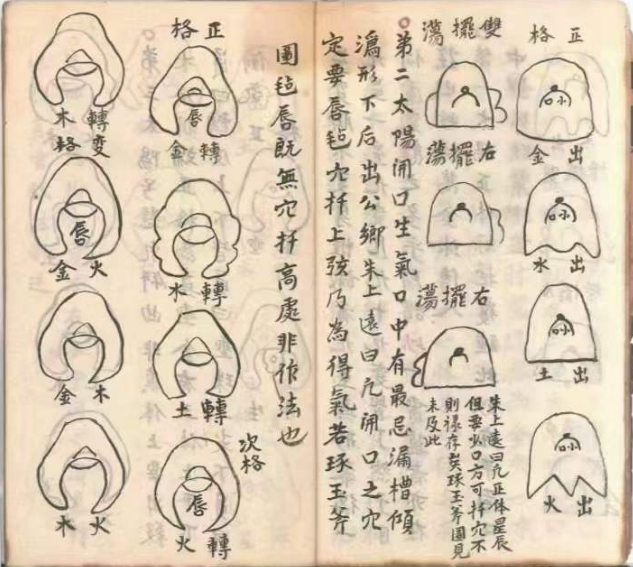 正格
出金
出水
出土
出火
雙擺蕩
右擺蕩
右擺蕩
朱上遠曰凡正体星辰
但要水口方可扦穴不
則祿存矣球玉斧圖見
未及此
第二太陽開口生氣口中有最忌漏槽傾
瀉形下后出公卿朱上遠曰凡開口之穴
定要唇毡穴扦上弦乃為得氣若琢玉斧
圖毡唇既無穴扦高處非作法也
正格
唇
轉金
轉水
轉土
次格
唇
轉火
轉变
木格
唇
火金
木金
火木